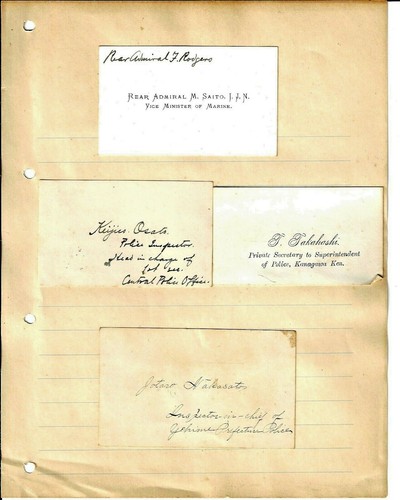 Rear Admiral F. Rodgers
Rear Admiral M. Saito, I. J. N.
Vice Minister of Marine.
Keijiu Osato.
Police Inspector.
Head in charge of
1st sec.
Central Police Office.
T. Takahashi.
Private Secretary to Superintendent
of Police, Kanagawa Ken.
Jotaro Nakasato
Inspector-in-chief of
Police